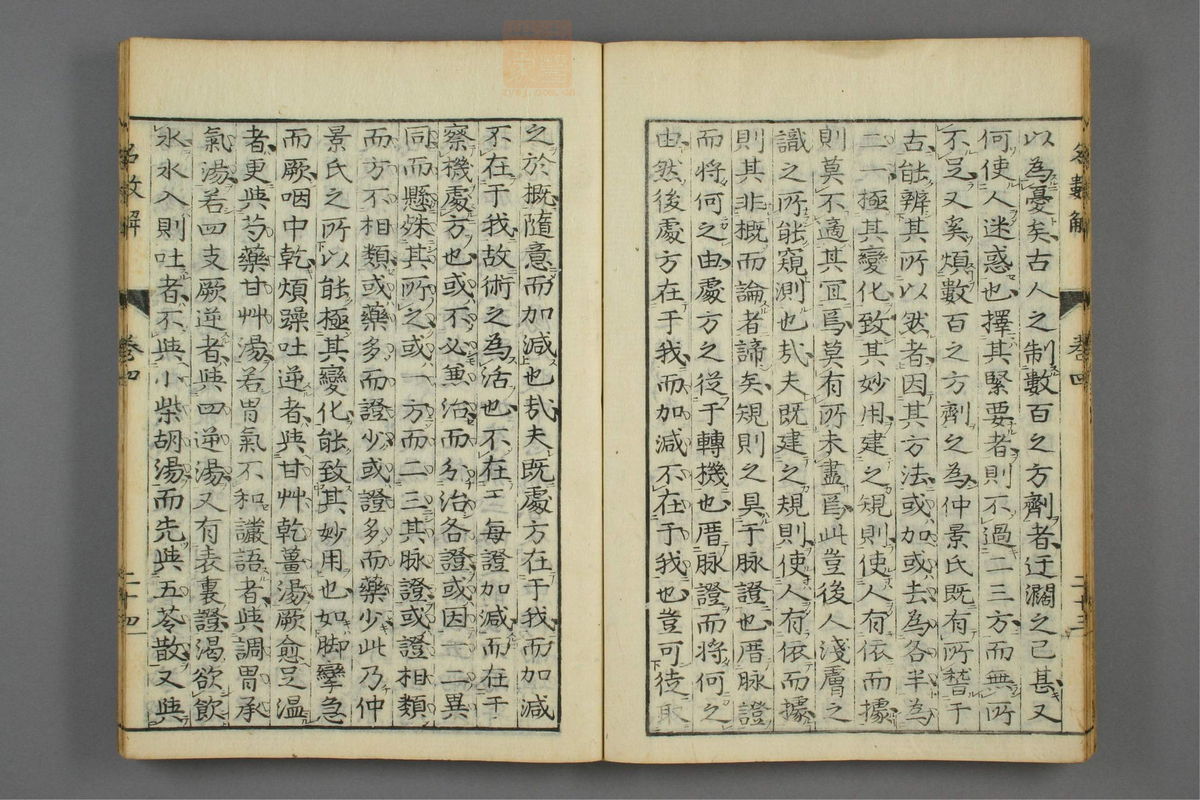 以為憂矣古人之制數百之方劑者迂濶之已甚又
何使人迷惑也擇其緊要者則不過二三方而無所
不足又奚煩數百之方劑之為仲景氏既有所瞀于
古能辨其所以然者因其方法或加或去為各半為
二一極其變化致其妙用建之規則使人有依而據
則莫不適其宜焉莫有所未盡焉此豈後人淺膚之
識之所能窺測也哉夫既建之規則使人有依而據
則其非概而論者諦矣規則之具于脉證也厝脉證
而將何之由處方之從于轉機也厝脉證而將何之
由然後處方在于我而加減不在于我也豈可徒取
之於概隨意而加減也哉夫既處方在于我而加減
不在于我故術之為活也不在每證加減而在于
察機處方也或不必兼治而分治各證或因一二異
同而懸殊其所之或一方而二三其脉證或證相類
而方不相類或藥多而證少或證多而藥少此乃仲
景氏之所以能極其變化能致其妙用也如脚攣急
而厥咽中乾煩躁吐逆者與甘艸乾薑湯厥愈足温
者更與芍藥甘艸湯若胃氣不和讝語者與調胃承
氣湯若四支厥逆者與四逆湯又有表裏證渴欲飲
水水入則吐者不與小柴胡湯而先與五苓散又與
卷四
二十三
名數解
卷四
二十四